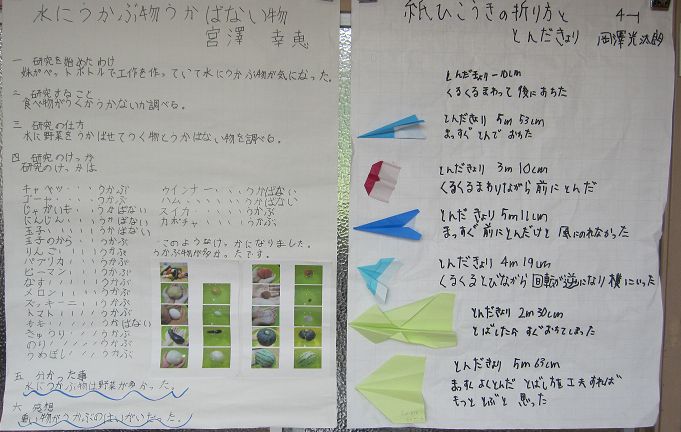 水にうかぶ物うかばない物
宮澤 幸恵
一 研究を始めたわけ
妹がペットボトルで工作を作っていて水にうかぶ物が気になった。
二 研究すること
食べ物がうくかうかないか調べる。
三 研究の仕方
水に野菜をうかばせてうく物とうかばない物を調べる。
四 研究のけっか
研究のけっかは
キャベツ・・・うかぶ
ゴーヤ・・・・うかぶ
じゃがいも・・うかばない
にんじん・・・うかばない
玉子・・・・・うかばない
玉子のから・・うかぶ
りんご・・・・うかぶ
パプリカ・・・うかぶ
ピーマン・・・うかぶ
なす・・・・・うかぶ
メロン・・・・うかぶ
ズッキーニ・・うかぶ
トマト・・・・うかぶ
うかばない
きゅうり・・・うかぶ
のり・・・・・うかぶ
うめぼし・・・うかぶ
ウインナー・・・・うかばない
ハム・・・・・・・うかばない
スイカ・・・・・・うかぶ
カボチャ・・・・・うかぶ
このようなけっかになりました。
うかぶ物が多かったです。
五 分かった事
水にうかぶ物は野菜が多かった。
六 感想
重い物がうかぶのはいがいだった。
紙ひこうきの折り方と
とんだきょり
4-1
岡澤光太郎
とんだきょり -10cm
くるくるまわって後におちた
とんだきょり 5m 53cm
まっすぐとんでおちた
とんだきょり 3m 10cm
くるくるまわりながら前にとんだ
とんだきょり 5m11cm
まっすぐ前にとんだけど風にのれなかった
とんだきょり 4m 19cm
くるくるとびながら回転が逆になり横にいった
とんだきょり 2m 30cm
とばしたらすぐおちてしまった
とんだきょり 5m 63cm
まっすぐよくとんだ とばし方を工夫すれば
もっととぶと思った